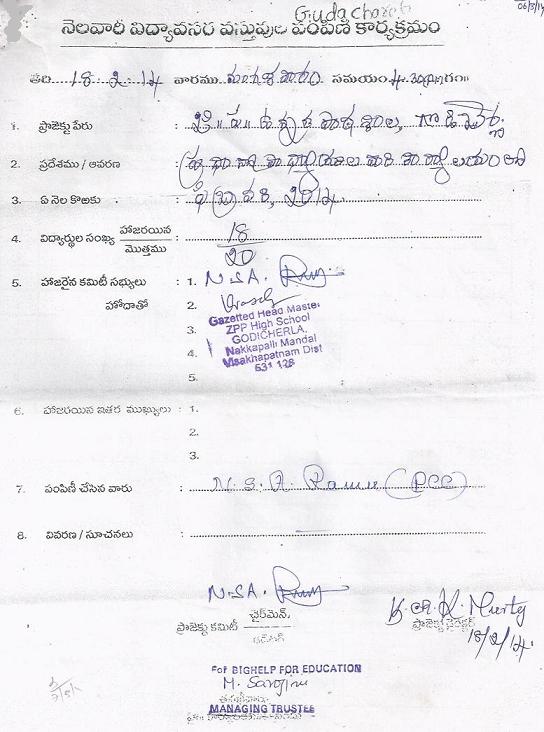 Giuda Chareti
06/3/14
నెలవారీ విద్యావసర వస్తువుల పంపిణీ కార్యక్రమం
తేది 18 2 14 వారము మంగళవారం సమయం 4.30
1. ప్రాజెక్టు పేరు : జి॥ప॥ ఉన్నత పాఠశాల, గొడిచెర్ల
2. ప్రదేశము / ఆవరణ : ప్రధానోపాధ్యాయుల వారి కార్యాలయం
3. ఏ నెల కొఱకు : ఫిబ్రవరి, 2014
4. విద్యార్థుల సంఖ్య హాజరయిన / మొత్తము : 18 / 20
5. హాజరైన కమిటీ సభ్యులు : 1. N.S.A.
హోదాతో 2.
Gazetted Head Master
3. ZPP High School
GODICHERLA,
4. Nakkapalli Mandal
Visakhapatnam Dist
531 126
5.
6. హాజరయిన ఇతర ముఖ్యులు : 1.
2.
3.
7. పంపిణీ చేసిన వారు : N. S. A. Ramu (PCC)
8. వివరణ / సూచనలు :
N.S.A.
ప్రాజెక్టు కమిటీ ఛైర్మెన్,
K. Murty
ప్రాజెక్ట్ డైరెక్టర్
18/2/14
For BIGHELP FOR EDUCATION
M. Sarojini
MANAGING TRUSTEE